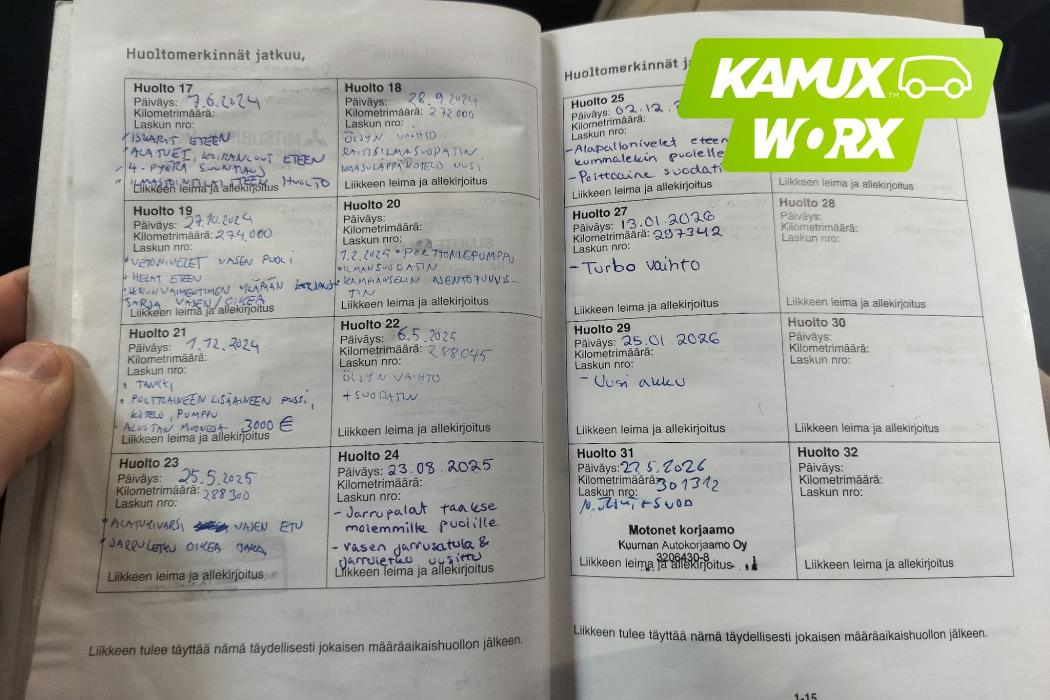 Huoltomerkinnät jatkuu,
Huolto 17
Päiväys: 7.6.2024
Kilometrimäärä:
Laskun nro:
ISKARIT ETEEN
ALATUET, KOIRANLUUT ETEEN
4-PYÖRÄ SUUNTAUS
HUOLTO
Liikkeen leima ja allekirjoitus
Huolto 18
Päiväys: 28.9.2024
Kilometrimäärä: 272000
Laskun nro:
ÖLJYN VAIHTO
RAITISILMASUODATIN
KAASULÄPPÄKOTELO UUSI
Liikkeen leima ja allekirjoitus
Huolto 19
Päiväys: 27.10.2024
Kilometrimäärä: 274.000
Laskun nro:
• VETONIVELET VASEN PUOLI
• HELAT ETEEN
• ISKUNVAIMENTIMEN YLÄPÄÄN KORJAUS
SARJA VASEN/OIKEA
Liikkeen leima ja allekirjoitus
Huolto 20
Päiväys:
Kilometrimäärä:
Laskun nro:
1.2.2025 • POLTTOAINEPUMPPU
• ILMANSUODATIN
• KAMPIAKSELIN ASENTOTUNNIS-
TIN
Liikkeen leima ja allekirjoitus
Huolto 21
Päiväys: 1.12.2024
Kilometrimäärä:
Laskun nro:
• TANKKI
• POLTTOAINEEN LISÄAINEEN PUSSI,
KOTELO, PUMPPU
ALUSTAN 3000 €
Liikkeen leima ja allekirjoitus
Huolto 22
Päiväys: 6.5.2025
Kilometrimäärä: 288045
Laskun nro:
ÖLJYN VAIHTO
+ SUODATIN
Liikkeen leima ja allekirjoitus
Huolto 23
Päiväys: 25.5.2025
Kilometrimäärä: 288300
Laskun nro:
• ALATUKIVARSI VASEN ETU
• JARRULETKU OIKEA TAKA
Liikkeen leima ja allekirjoitus
Huolto 24
Päiväys: 23.08.2025
Kilometrimäärä:
Laskun nro:
- Jarrupalat taakse
molemmille puolille
- vasen jarrusatula &
jarruletku uusittu
Liikkeen leima ja allekirjoitus
Liikkeen tulee täyttää nämä täydellisesti jokaisen määräaikaishuollon jälkeen.
Huoltomerkinnät
KAMUX
WORX
Huolto 25
Päiväys: 02.12.
Kilometrimäärä:
Laskun nro:
- Alapallonivelet eteen
kummalekin puolelle
- Polttoaine suodati
Liikkeen leima ja allekirjoitus
Liikkeen leima ja allekirjoitus
Huolto 27
Päiväys: 13.01.2026
Kilometrimäärä: 297342
Laskun nro:
- Turbo vaihto
Liikkeen leima ja allekirjoitus
Huolto 28
Päiväys:
Kilometrimäärä:
Laskun nro:
Liikkeen leima ja allekirjoitus
Huolto 29
Päiväys: 25.01.2026
Kilometrimäärä:
Laskun nro:
- Uusi akku
Liikkeen leima ja allekirjoitus
Huolto 30
Päiväys:
Kilometrimäärä:
Laskun nro:
Liikkeen leima ja allekirjoitus
Huolto 31
Päiväys: 22.5.2026
Kilometrimäärä: 301312
Laskun nro:
+ SUOD
Motonet korjaamo
Kuurnan Autokorjaamo Oy
3206430-8
Liikkeen leima ja allekirjoitus
Huolto 32
Päiväys:
Kilometrimäärä:
Laskun nro:
Liikkeen leima ja allekirjoitus
Liikkeen tulee täyttää nämä täydellisesti jokaisen määräaikaishuollon jälkeen.
1-15